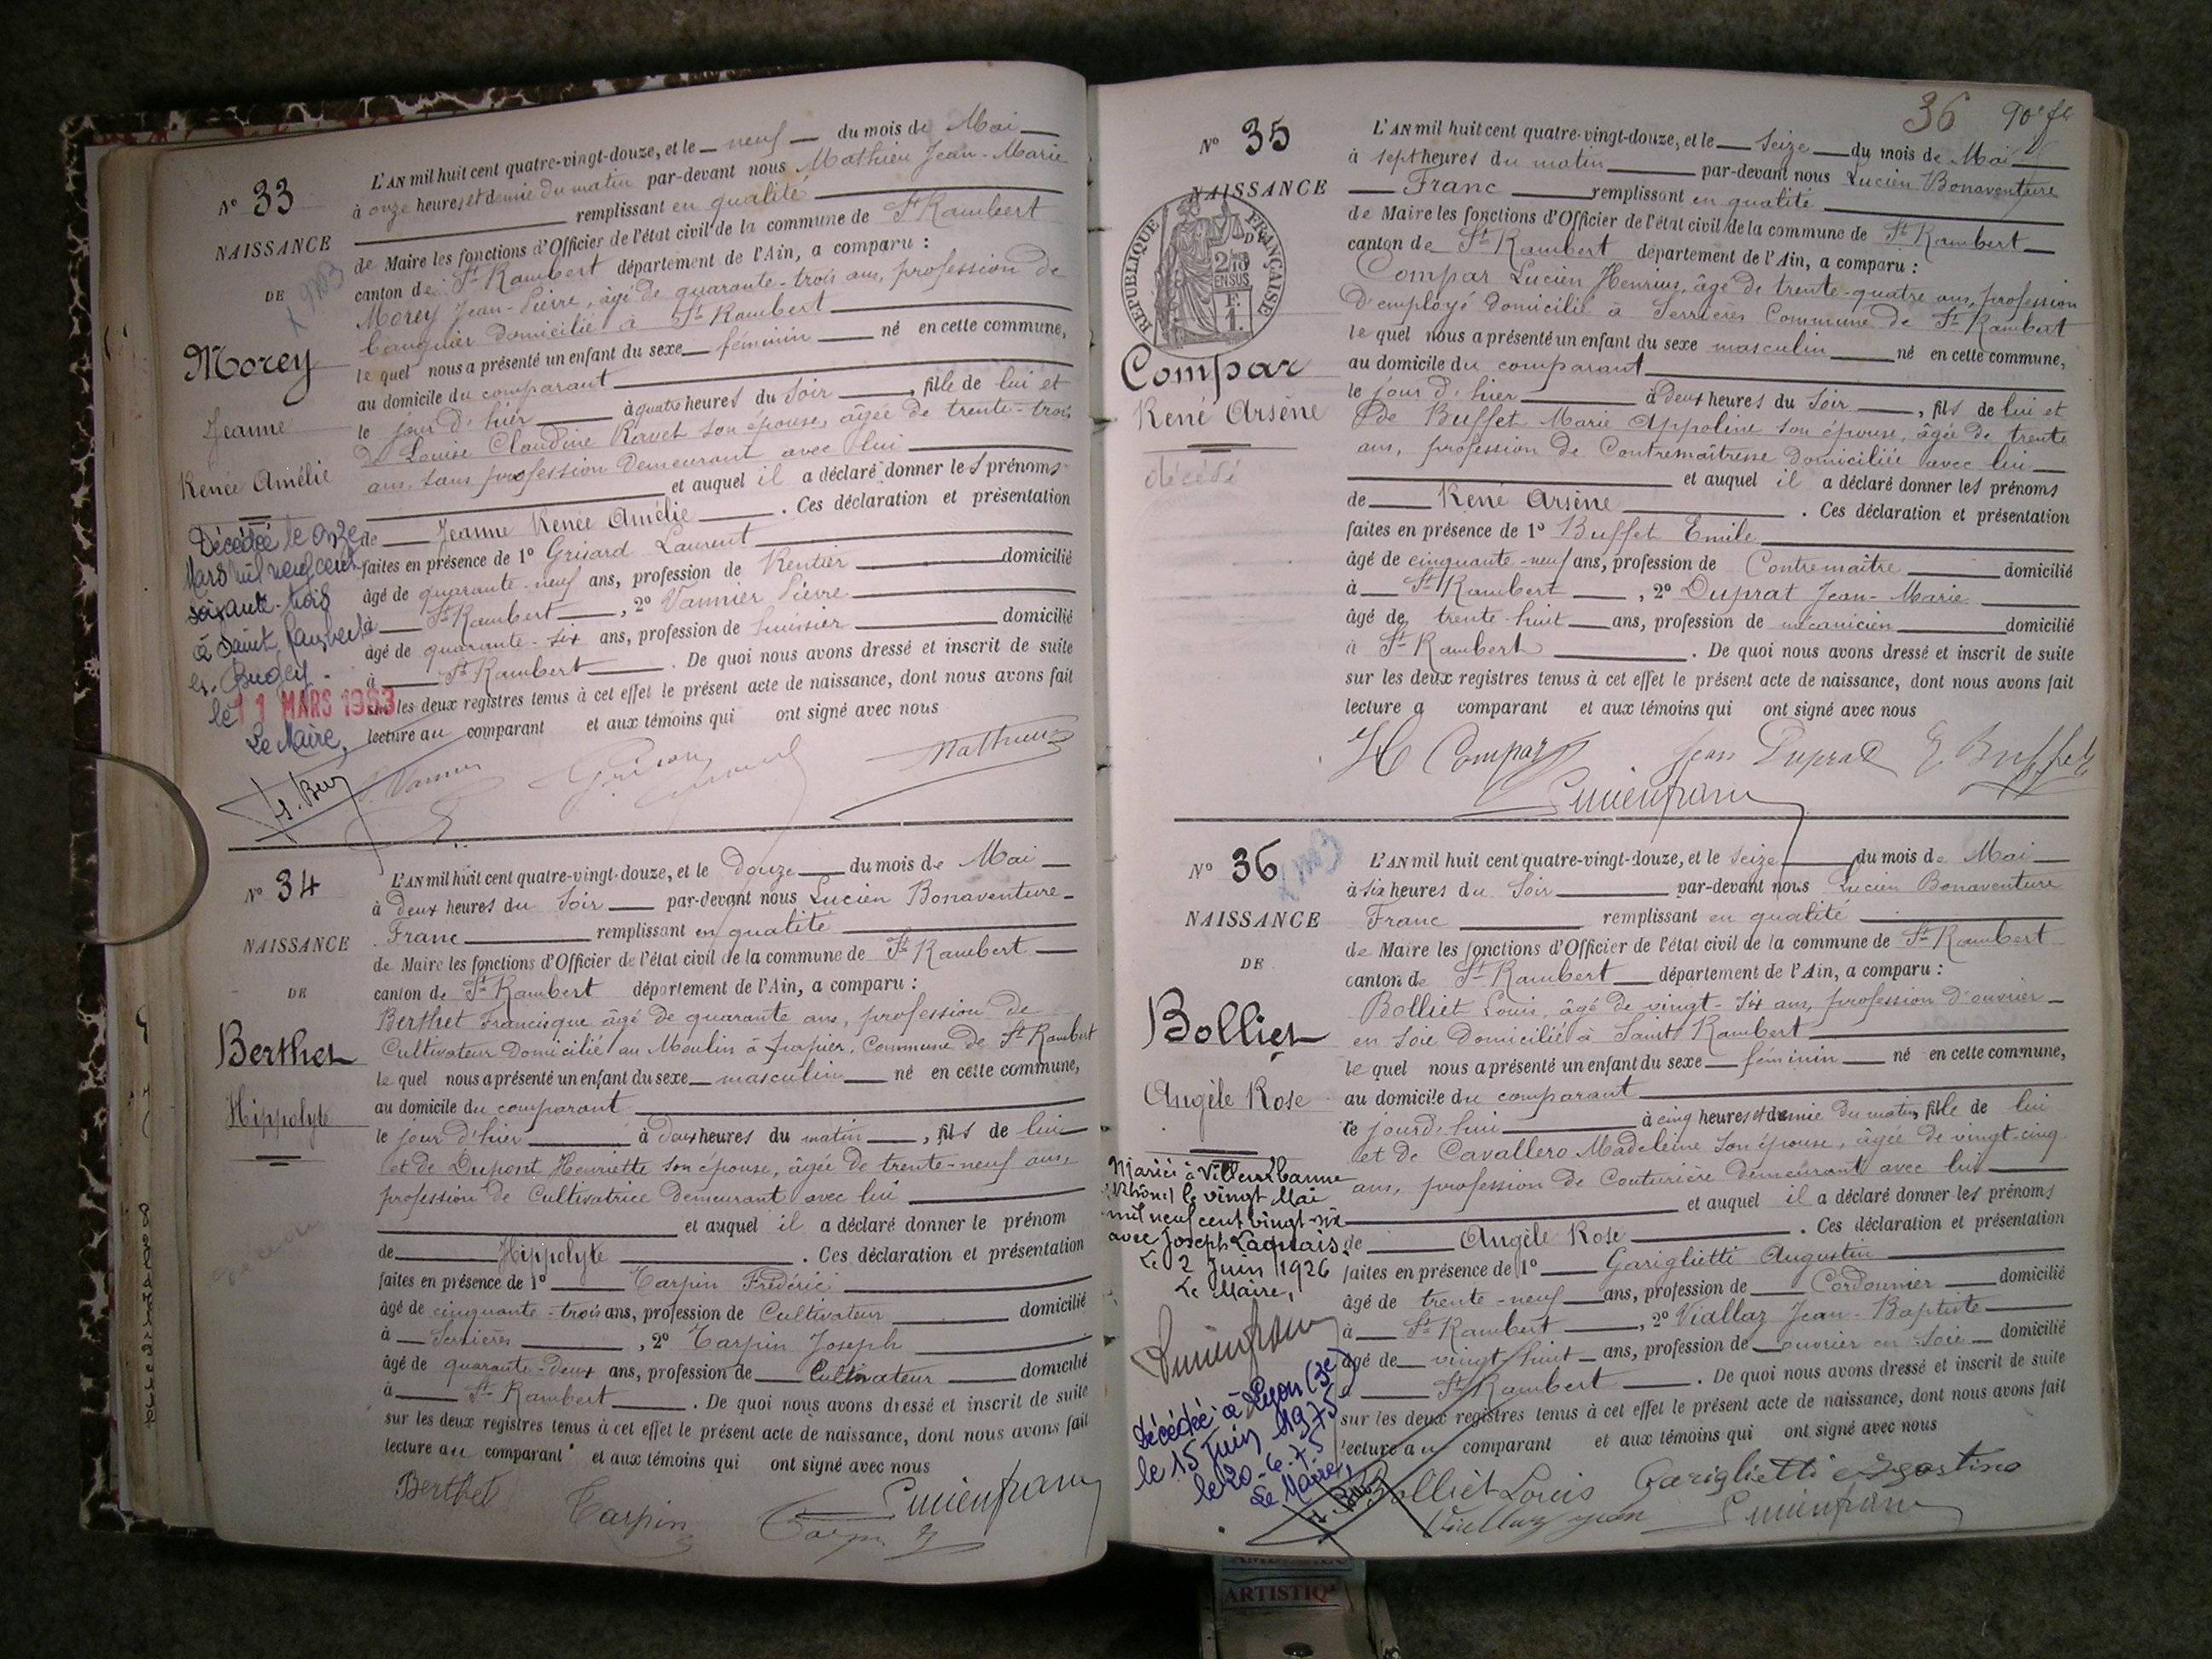 N° 33
NAISSANCE
DE
Morey
Jeanne
Renée Amélie
Décédée le onze
Mars mil neuf cent
soixante-trois
à Saint Rambert
en-Bugey.
le 11 MARS 1963
Le Maire,
L'AN mil huit cent quatre-vingt-douze, et le neuf du mois de Mai
à onze heures et demie du matin par-devant nous Mathieu Jean-Marie
remplissant en qualité
de Maire les fonctions d'Officier de l'état civil de la commune de St Rambert
canton de St Rambert département de l'Ain, a comparu :
Morey Jean-Pierre, âgé de quarante-trois ans, profession de
banquier domicilié à St Rambert
le quel nous a présenté un enfant du sexe féminin né en cette commune,
au domicile du comparant
le jour d'hier à quatre heures du soir, fille de lui et
de Louise Claudine son épouse, âgée de trente-trois
ans, sans profession demeurant avec lui
et auquel il a déclaré donner les prénoms
de Jeanne Renée Amélie. Ces déclaration et présentation
faites en présence de 1° Grisard Laurent
âgé de quarante-neuf ans, profession de Rentier domicilié
à St Rambert, 2° Vannier Pierre
âgé de quarante-six ans, profession de huissier domicilié
à St Rambert. De quoi nous avons dressé et inscrit de suite
sur les deux registres tenus à cet effet le présent acte de naissance, dont nous avons fait
lecture au comparant et aux témoins qui ont signé avec nous
Mathieu
N° 34
NAISSANCE
DE
Berthet
Hippolyte
L'AN mil huit cent quatre-vingt-douze, et le douze du mois de Mai
à deux heures du soir par-devant nous Lucien Bonaventure
Franc remplissant en qualité
de Maire les fonctions d'Officier de l'état civil de la commune de St Rambert
canton de St Rambert département de l'Ain, a comparu :
Berthet Francisque âgé de quarante ans, profession de
Cultivateur domicilié au Moulin à papier, Commune de St Rambert
le quel nous a présenté un enfant du sexe masculin né en cette commune,
au domicile du comparant
le jour d'hier à deux heures du matin, fils de lui
et de Dupont Henriette son épouse, âgée de trente-neuf ans,
profession de Cultivatrice demeurant avec lui
et auquel il a déclaré donner le prénom
de Hippolyte. Ces déclaration et présentation
faites en présence de 1° Tarpin Frédéric
âgé de cinquante-trois ans, profession de Cultivateur domicilié
à Serrières, 2° Tarpin Joseph
âgé de quarante-deux ans, profession de Cultivateur domicilié
à St Rambert. De quoi nous avons dressé et inscrit de suite
sur les deux registres tenus à cet effet le présent acte de naissance, dont nous avons fait
lecture au comparant et aux témoins qui ont signé avec nous
Berthet Tarpin Lucien franc
36
N° 35
NAISSANCE
DE
RÉPUBLIQUE FRANÇAISE
EN SUS
Compar
René Arsène
décédé
L'AN mil huit cent quatre-vingt-douze, et le Seize du mois de Mai
à sept heures du matin par-devant nous Lucien Bonaventure
Franc remplissant en qualité
de Maire les fonctions d'Officier de l'état civil de la commune de St Rambert
canton de St Rambert département de l'Ain, a comparu :
Compar Lucien Henrius, âgé de trente-quatre ans, profession
d'employé domicilié à Serrières Commune de St Rambert
le quel nous a présenté un enfant du sexe masculin né en cette commune,
au domicile du comparant
le jour d'hier à deux heures du soir, fils de lui et
de Buffet Marie Appoline son épouse, âgée de trente
ans, profession de Contremaîtresse domiciliée avec lui
et auquel il a déclaré donner les prénoms
de René Arsène. Ces déclaration et présentation
faites en présence de 1° Buffet Emile
âgé de cinquante-neuf ans, profession de Contremaître domicilié
à St Rambert, 2° Duprat Jean-Marie
âgé de trente-huit ans, profession de mécanicien domicilié
à St Rambert. De quoi nous avons dressé et inscrit de suite
sur les deux registres tenus à cet effet le présent acte de naissance, dont nous avons fait
lecture a comparant et aux témoins qui ont signé avec nous
H Compar Jean Duprat E. Buffet
Lucien franc
N° 36
NAISSANCE
DE
Bolliet
Angèle Rose
Mariée à Villeurbanne
(Rhône) le vingt Mai
mil neuf cent vingt-six
avec Joseph
Le 2 Juin 1926
Le Maire,
Lucien franc
Décédée à Lyon (3e)
le 15 Juin 1975
le 20-6-75
Le Maire,
L'AN mil huit cent quatre-vingt-douze, et le seize du mois de Mai
à six heures du soir par-devant nous Lucien Bonaventure
Franc remplissant en qualité
de Maire les fonctions d'Officier de l'état civil de la commune de St Rambert
canton de St Rambert département de l'Ain, a comparu :
Bolliet Louis, âgé de vingt-six ans, profession d'ouvrier
en soie domicilié à Saint Rambert
le quel nous a présenté un enfant du sexe féminin né en cette commune,
au domicile du comparant
le jourd'hui à cinq heures et demie du matin, fille de lui
et de Cavallero Madeleine son épouse, âgée de vingt-cinq
ans, profession de Couturière demeurant avec lui
et auquel il a déclaré donner les prénoms
de Angèle Rose. Ces déclaration et présentation
faites en présence de 1° Gariglietti Augustin
âgé de trente-neuf ans, profession de Cordonnier domicilié
à St Rambert, 2° Viallaz Jean-Baptiste
âgé de vingt-huit ans, profession de ouvrier en soie domicilié
à St Rambert. De quoi nous avons dressé et inscrit de suite
sur les deux registres tenus à cet effet le présent acte de naissance, dont nous avons fait
lecture au comparant et aux témoins qui ont signé avec nous
Bolliet Louis Gariglietti Agostino
Lucien franc
ARTISTIQ